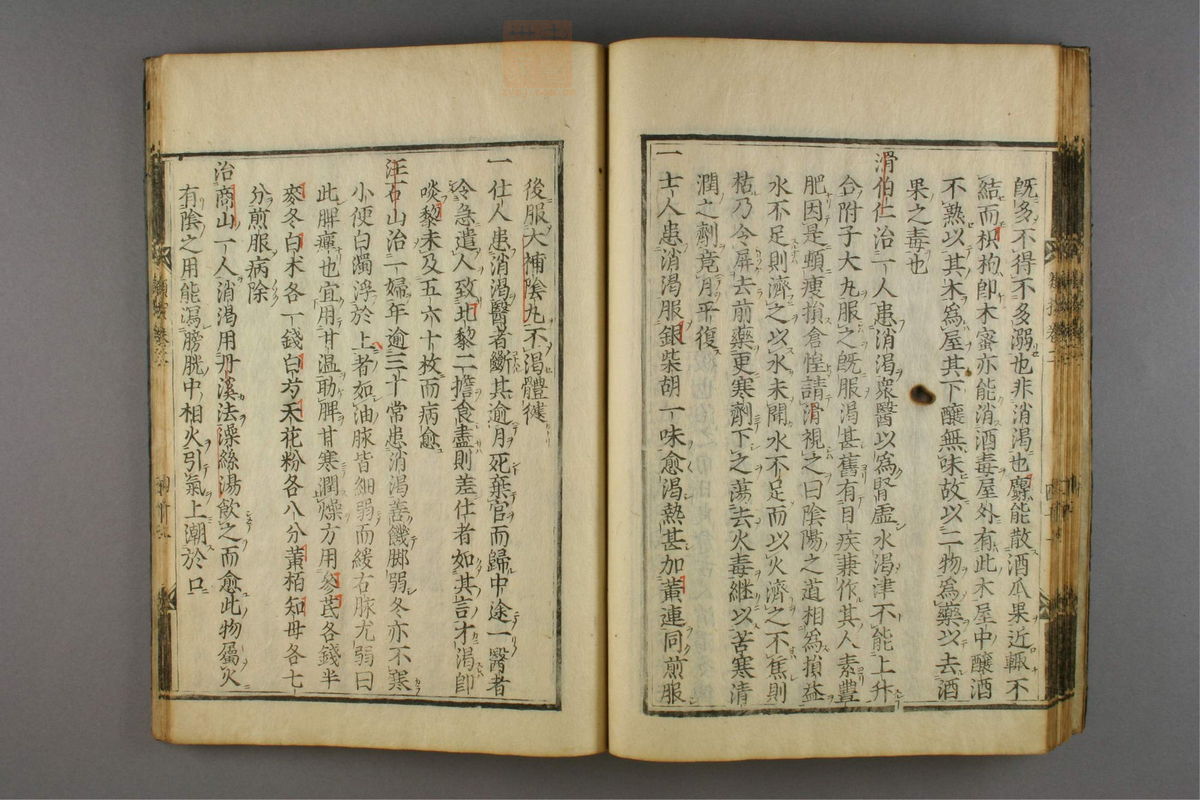 既多不得不多溺也非消渴也麝能散酒瓜果近輒不
結而枳枸卽木蜜亦能消酒毒屋外有此木屋中釀酒
不熟以其木爲屋其下釀無味故以二物爲藥以去酒
果之毒也
滑伯仁治一人患消渴衆醫以爲腎虛水渴津不能上升
合附子大丸服之既服渴甚舊有目疾兼作其人素豐
肥因是頓瘦損倉惶請滑視之曰陰陽之道相爲損益
水不足則濟之以水未聞水不足而以火濟之不焦則
枯乃令屏去前藥更寒劑下之蕩去火毒繼以苦寒清
潤之劑竟月平復
一士人患消渴服銀柴胡一味愈渴熱甚加黃連同煎服
後服大補陰丸不渴體健
一仕人患消渴醫者斷其逾月死棄官而歸中途一醫者
令急遣人致北黎二擔食盡則差仕者如其言才渴卽
啖黎未及五六十枚而病愈
汪石山治一婦年逾三十常患消渴善饑脚弱冬亦不寒
小便白濁浮於上者如油脉皆細弱而緩右脉尤弱曰
此脾癉也宜用甘溫助脾甘寒潤燥方用參芪各錢半
麥冬白朮各一錢白芍天花粉各八分黃栢知母各七
分煎服病除
治商山一人消渴用丹溪法繰絲湯飮之而愈此物屬火
有陰之用能瀉膀胱中相火引氣上潮於口